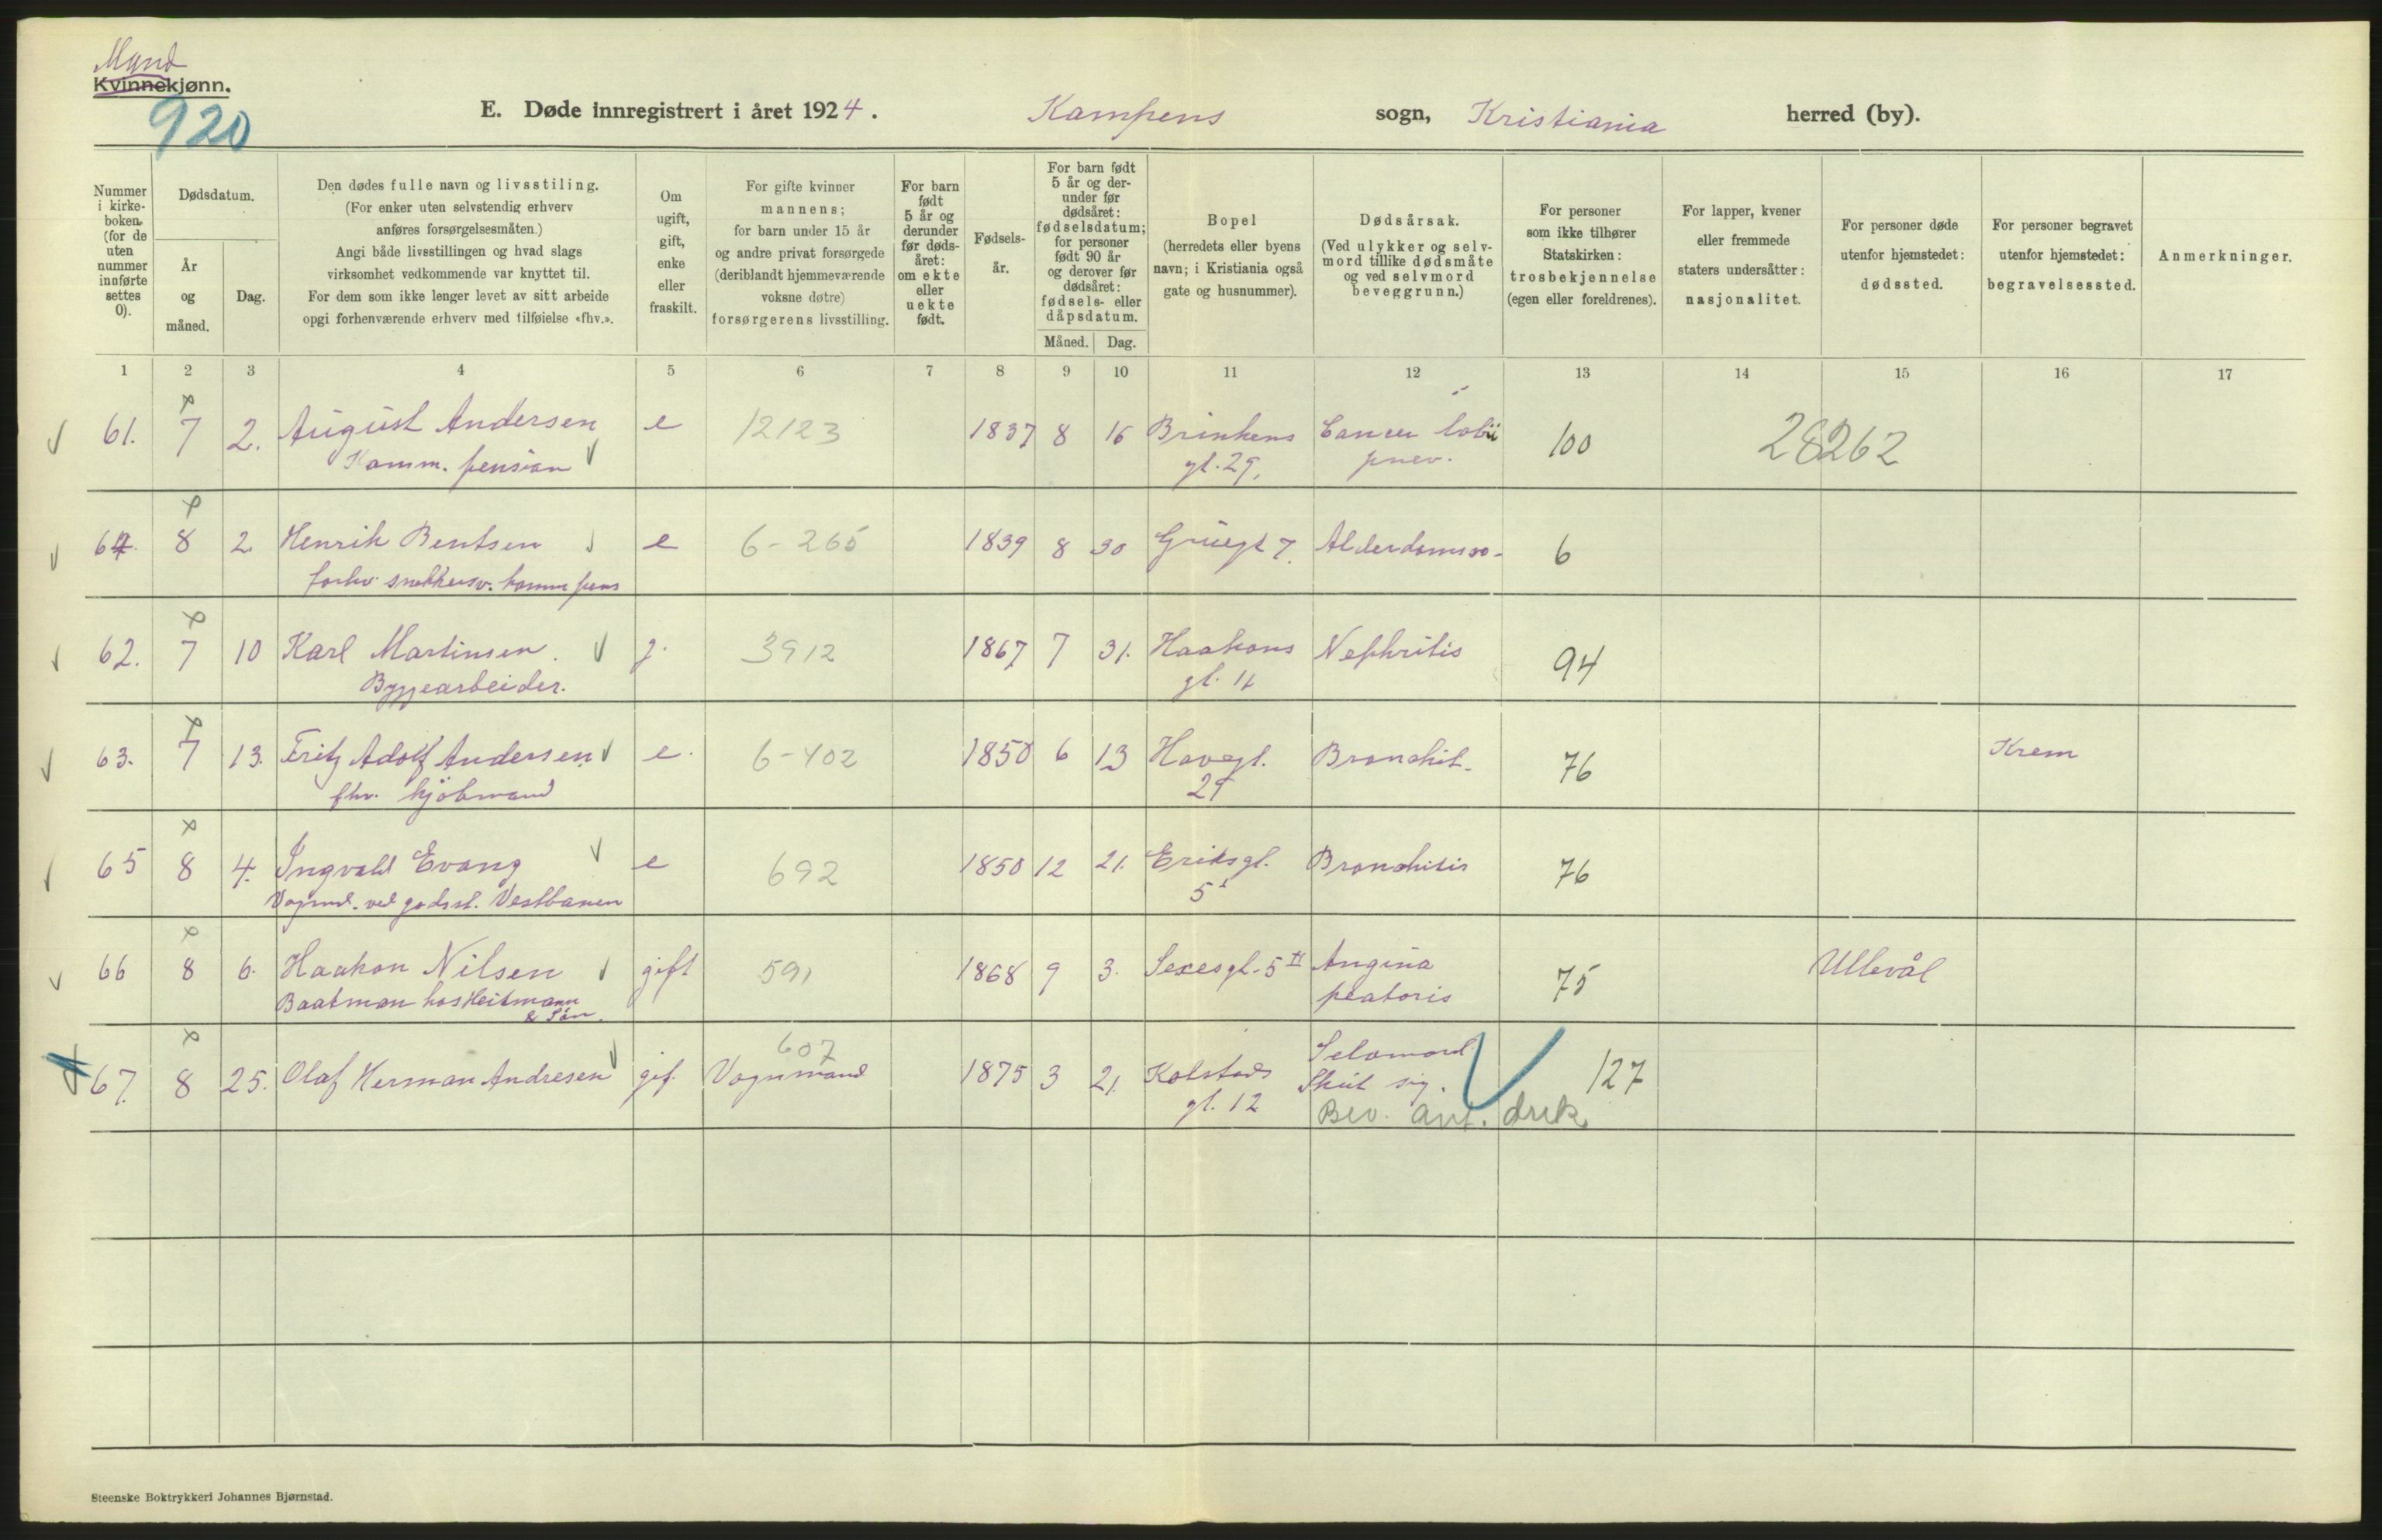 Mand
Kvinnekjønn.
920
E. Døde innregistrert i året 1924. Kampens sogn, Kristiania herred (by).
Nummer i kirkeboken (for de uten nummer innførte settes 0).
Dødsdatum.
År og måned.
Dag.
Den dødes fulle navn og livsstiling.
(For enker uten selvstendig erhverv
anføres forsørgelsesmåten.)
Angi både livsstillingen og hvad slags
virksomhet vedkommende var knyttet til.
For dem som ikke lenger levet av sitt arbeide
opgi forhenværende erhverv med tilføielse «fhv.».
Om ugift, gift, enke eller fraskilt.
For gifte kvinner
mannens;
for barn under 15 år
og andre privat forsørgede
(deriblandt hjemmeværende
voksne døtre)
forsørgerens livsstilling.
For barn født 5 år og derunder før dødsåret: om ekte eller uekte født.
Fødselsår.
For barn født 5 år og derunder før dødsåret: fødselsdatum; for personer født 90 år og derover før dødsåret: fødsels- eller dåpsdatum.
Måned. Dag.
Bopel
(herredets eller byens
navn; i Kristiania også
gate og husnummer).
Dødsårsak.
(Ved ulykker og selvmord tillike dødsmåte
og ved selvmord
beveggrunn.)
For personer
som ikke tilhører
Statskirken:
trosbekjennelse
(egen eller foreldrenes).
For lapper, kvener
eller fremmede
staters undersåtter:
nasjonalitet.
For personer døde
utenfor hjemstedet:
dødssted.
For personer begravet
utenfor hjemstedet:
begravelsessted.
Anmerkninger.
1 2 3 4 5 6 7 8 9 10 11 12 13 14 15 16 17
61. 7 2. August Andersen e 12123 1837 8 16 Brinkens Cancer 100 28262
Komm. pension gt. 29, pnev.
64. 8 2. Henrik Bentsen e 6-265 1839 8 30 Grüegt 7. 6
forhv. snekkersv. komm pens
62. 7 10 Karl Martinsen g. 3912 1867 7 31. Haakons Nephritis 94
Byggearbeider. gt. 11
63. 7 13. Fritz Adolf Andersen e. 6-402 1850 6 13 Havegt. Bronchit. 76 Krem
fhv. kjöbmand 29
65 8 4. Ingvald Evang e 692 1850 12 21. Eriksgt. Bronchitis 76
Vognmd. ved godsst. Vestbanen 5
66 8 6. Haakon Nilsen gift 591 1868 9 3. Sexesgt. 5 II Angina 75 Ullevål
Baatman hos Heitmann pectoris
& Sön.
67. 8 25. Olaf Herman Andresen gif. 607 Vognmand 1875 3 21. Kolstads Selvmord 127
gt. 12 Skút sig.
Bev. ant. drik
Steenske Boktrykkeri Johannes Bjørnstad.